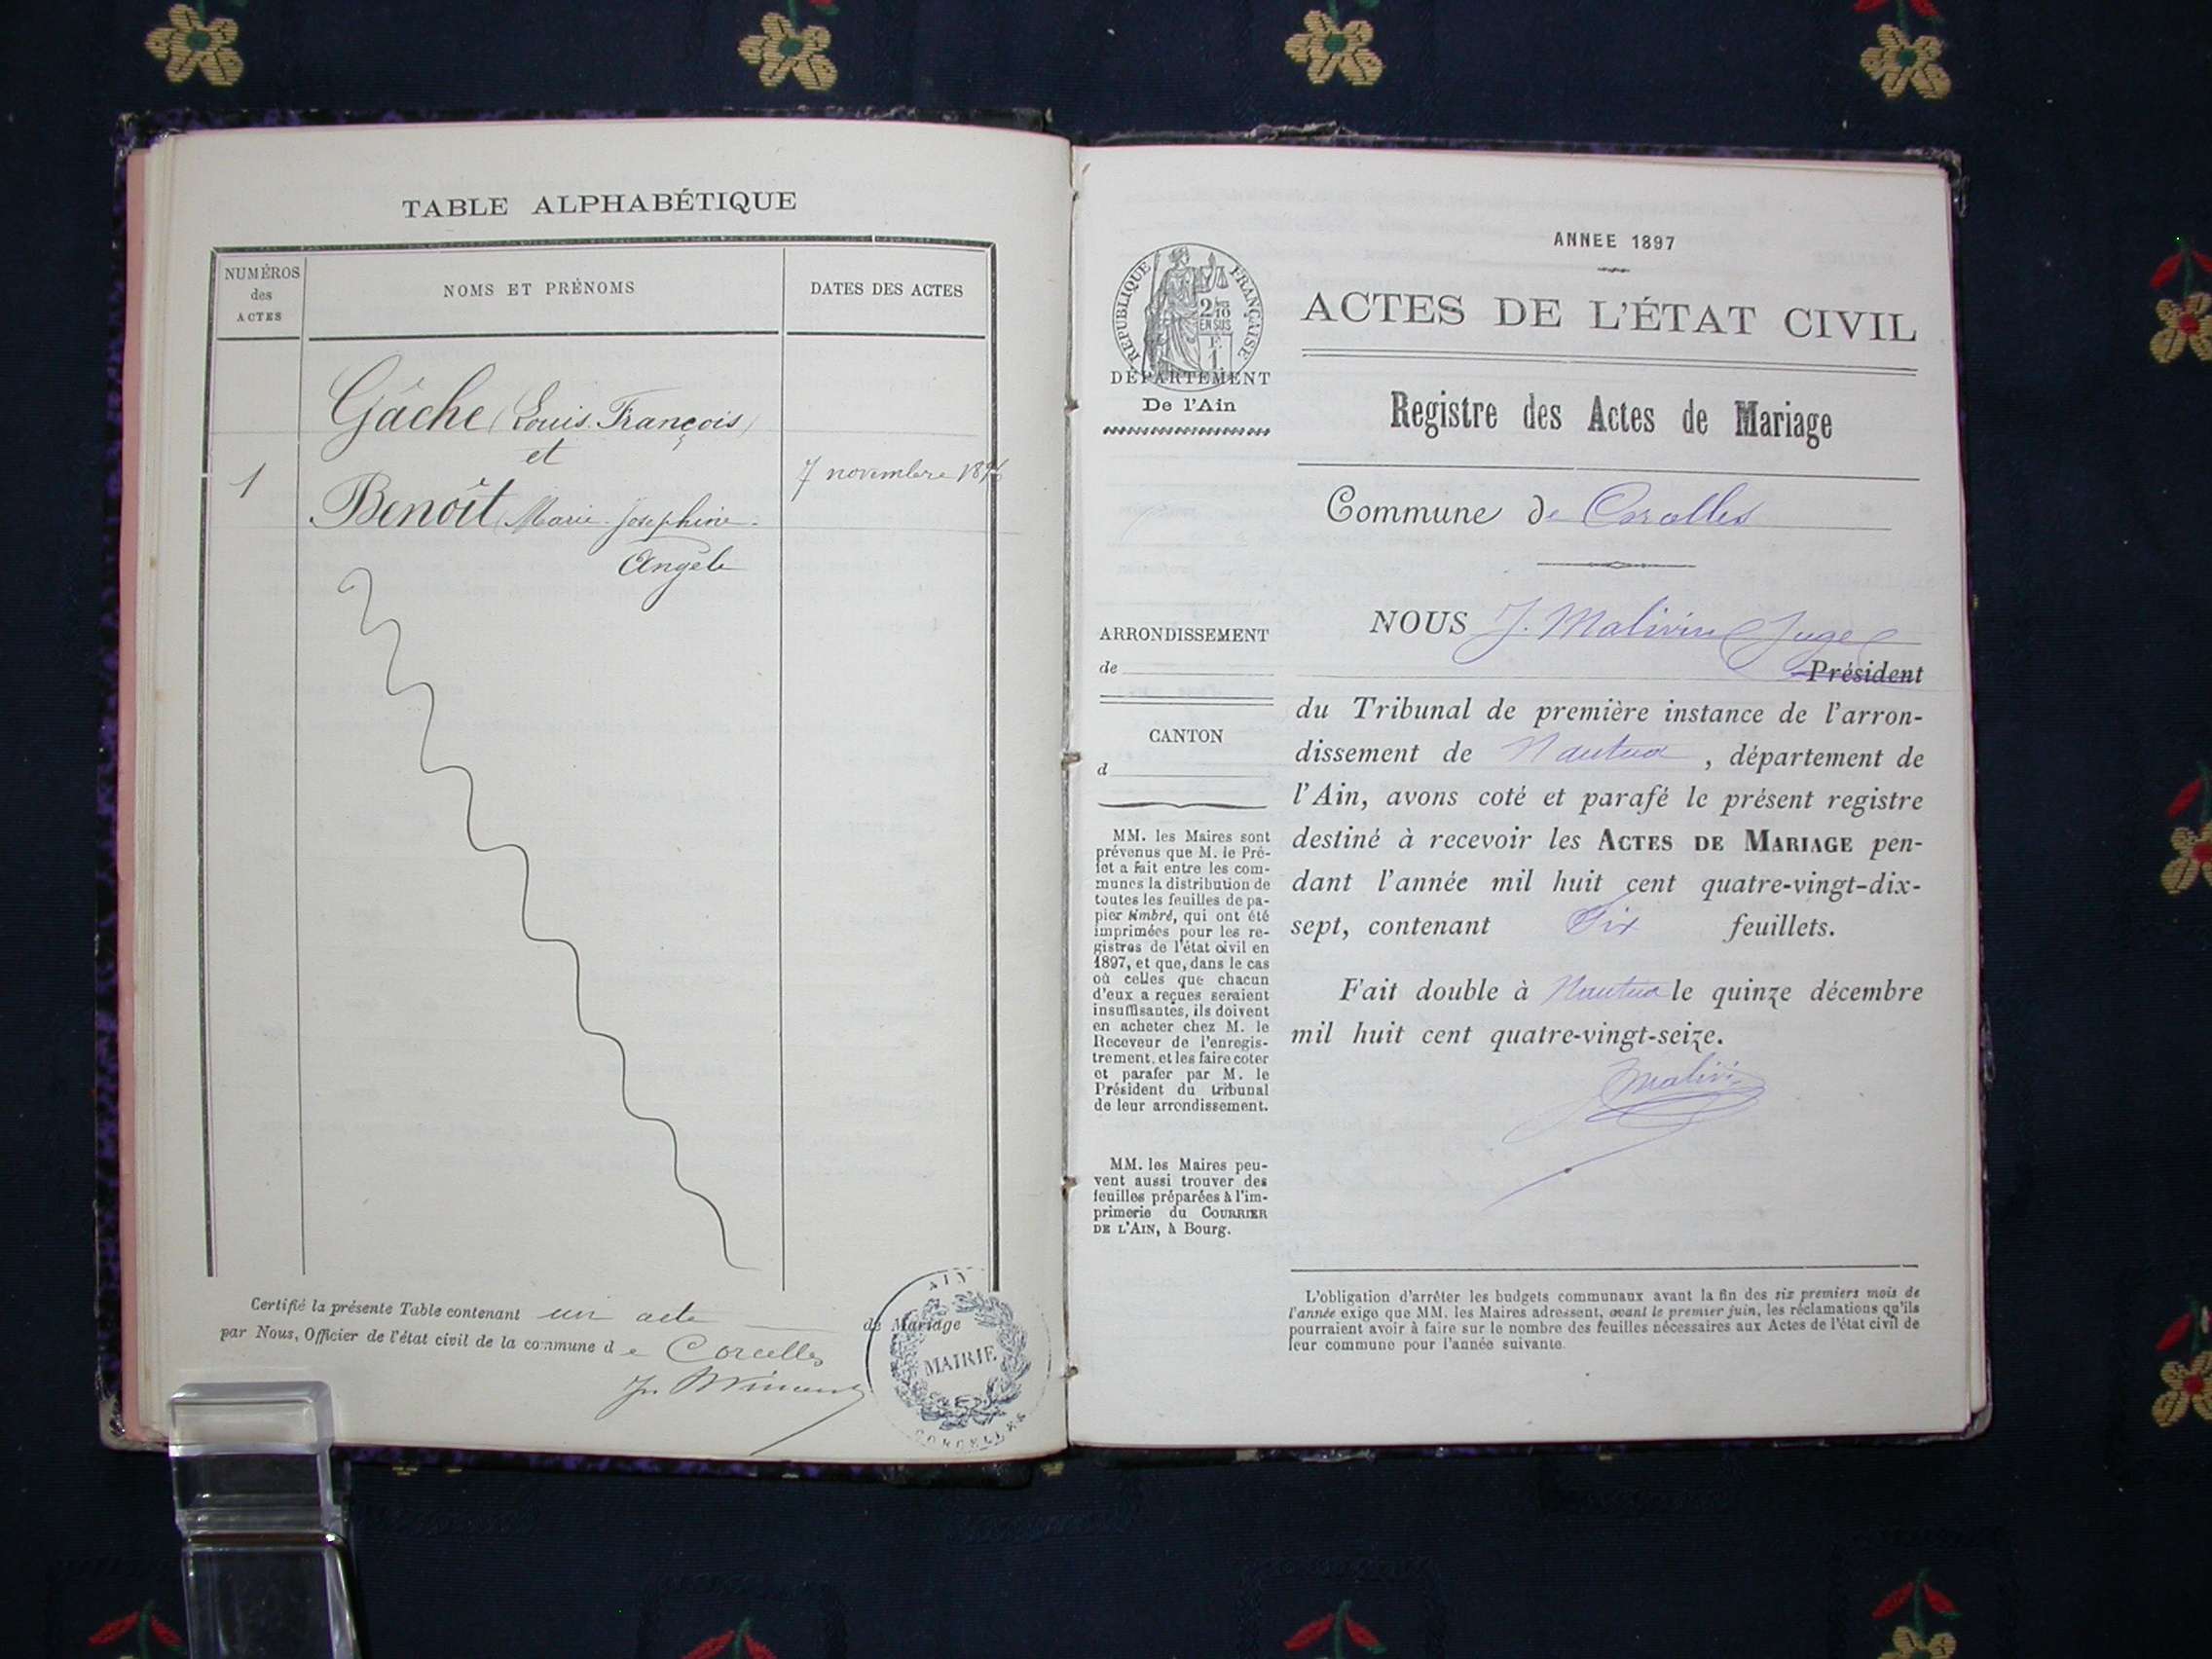 TABLE ALPHABÉTIQUE
NUMÉROS
des
ACTES
NOMS ET PRÉNOMS
DATES DES ACTES
Gâche (Louis François)
et
1
7 novembre 1896
Benoît (Marie-Josephine-
Angele
Certifié la présente Table contenant un acte de Mariage
par Nous, Officier de l'état civil de la commune de Corcelles
AIN
MAIRIE
CORCELLES
RÉPUBLIQUE FRANÇAISE
2/10
EN SUS
DÉPARTEMENT
De l'Ain
ARRONDISSEMENT
de
CANTON
d
MM. les Maires sont
prévenus que M. le Pré-
fet a fait entre les com-
munes la distribution de
toutes les feuilles de pa-
pier timbré, qui ont été
imprimées pour les re-
gistres de l'état civil en
1897, et que, dans le cas
où celles que chacun
d'eux a reçues seraient
insuffisantes, ils doivent
en acheter chez M. le
Receveur de l'enregis-
trement, et les faire coter
et parafer par M. le
Président du tribunal
de leur arrondissement.
MM. les Maires peu-
vent aussi trouver des
feuilles préparées à l'im-
primerie du COURRIER
DE L'AIN, à Bourg.
ANNEE 1897
ACTES DE L'ÉTAT CIVIL
Registre des Actes de Mariage
Commune de Corcelles
NOUS J. Malivin Juge
Président
du Tribunal de première instance de l'arron-
dissement de Nantua, département de
l'Ain, avons coté et parafé le présent registre
destiné à recevoir les ACTES DE MARIAGE pen-
dant l'année mil huit cent quatre-vingt-dix-
sept, contenant Six feuillets.
Fait double à Nantua le quinze décembre
mil huit cent quatre-vingt-seize.
Malivin
L'obligation d'arrêter les budgets communaux avant la fin des six premiers mois de
l'année exige que MM. les Maires adressent, avant le premier juin, les réclamations qu'ils
pourraient avoir à faire sur le nombre des feuilles nécessaires aux Actes de l'état civil de
leur commune pour l'année suivante.